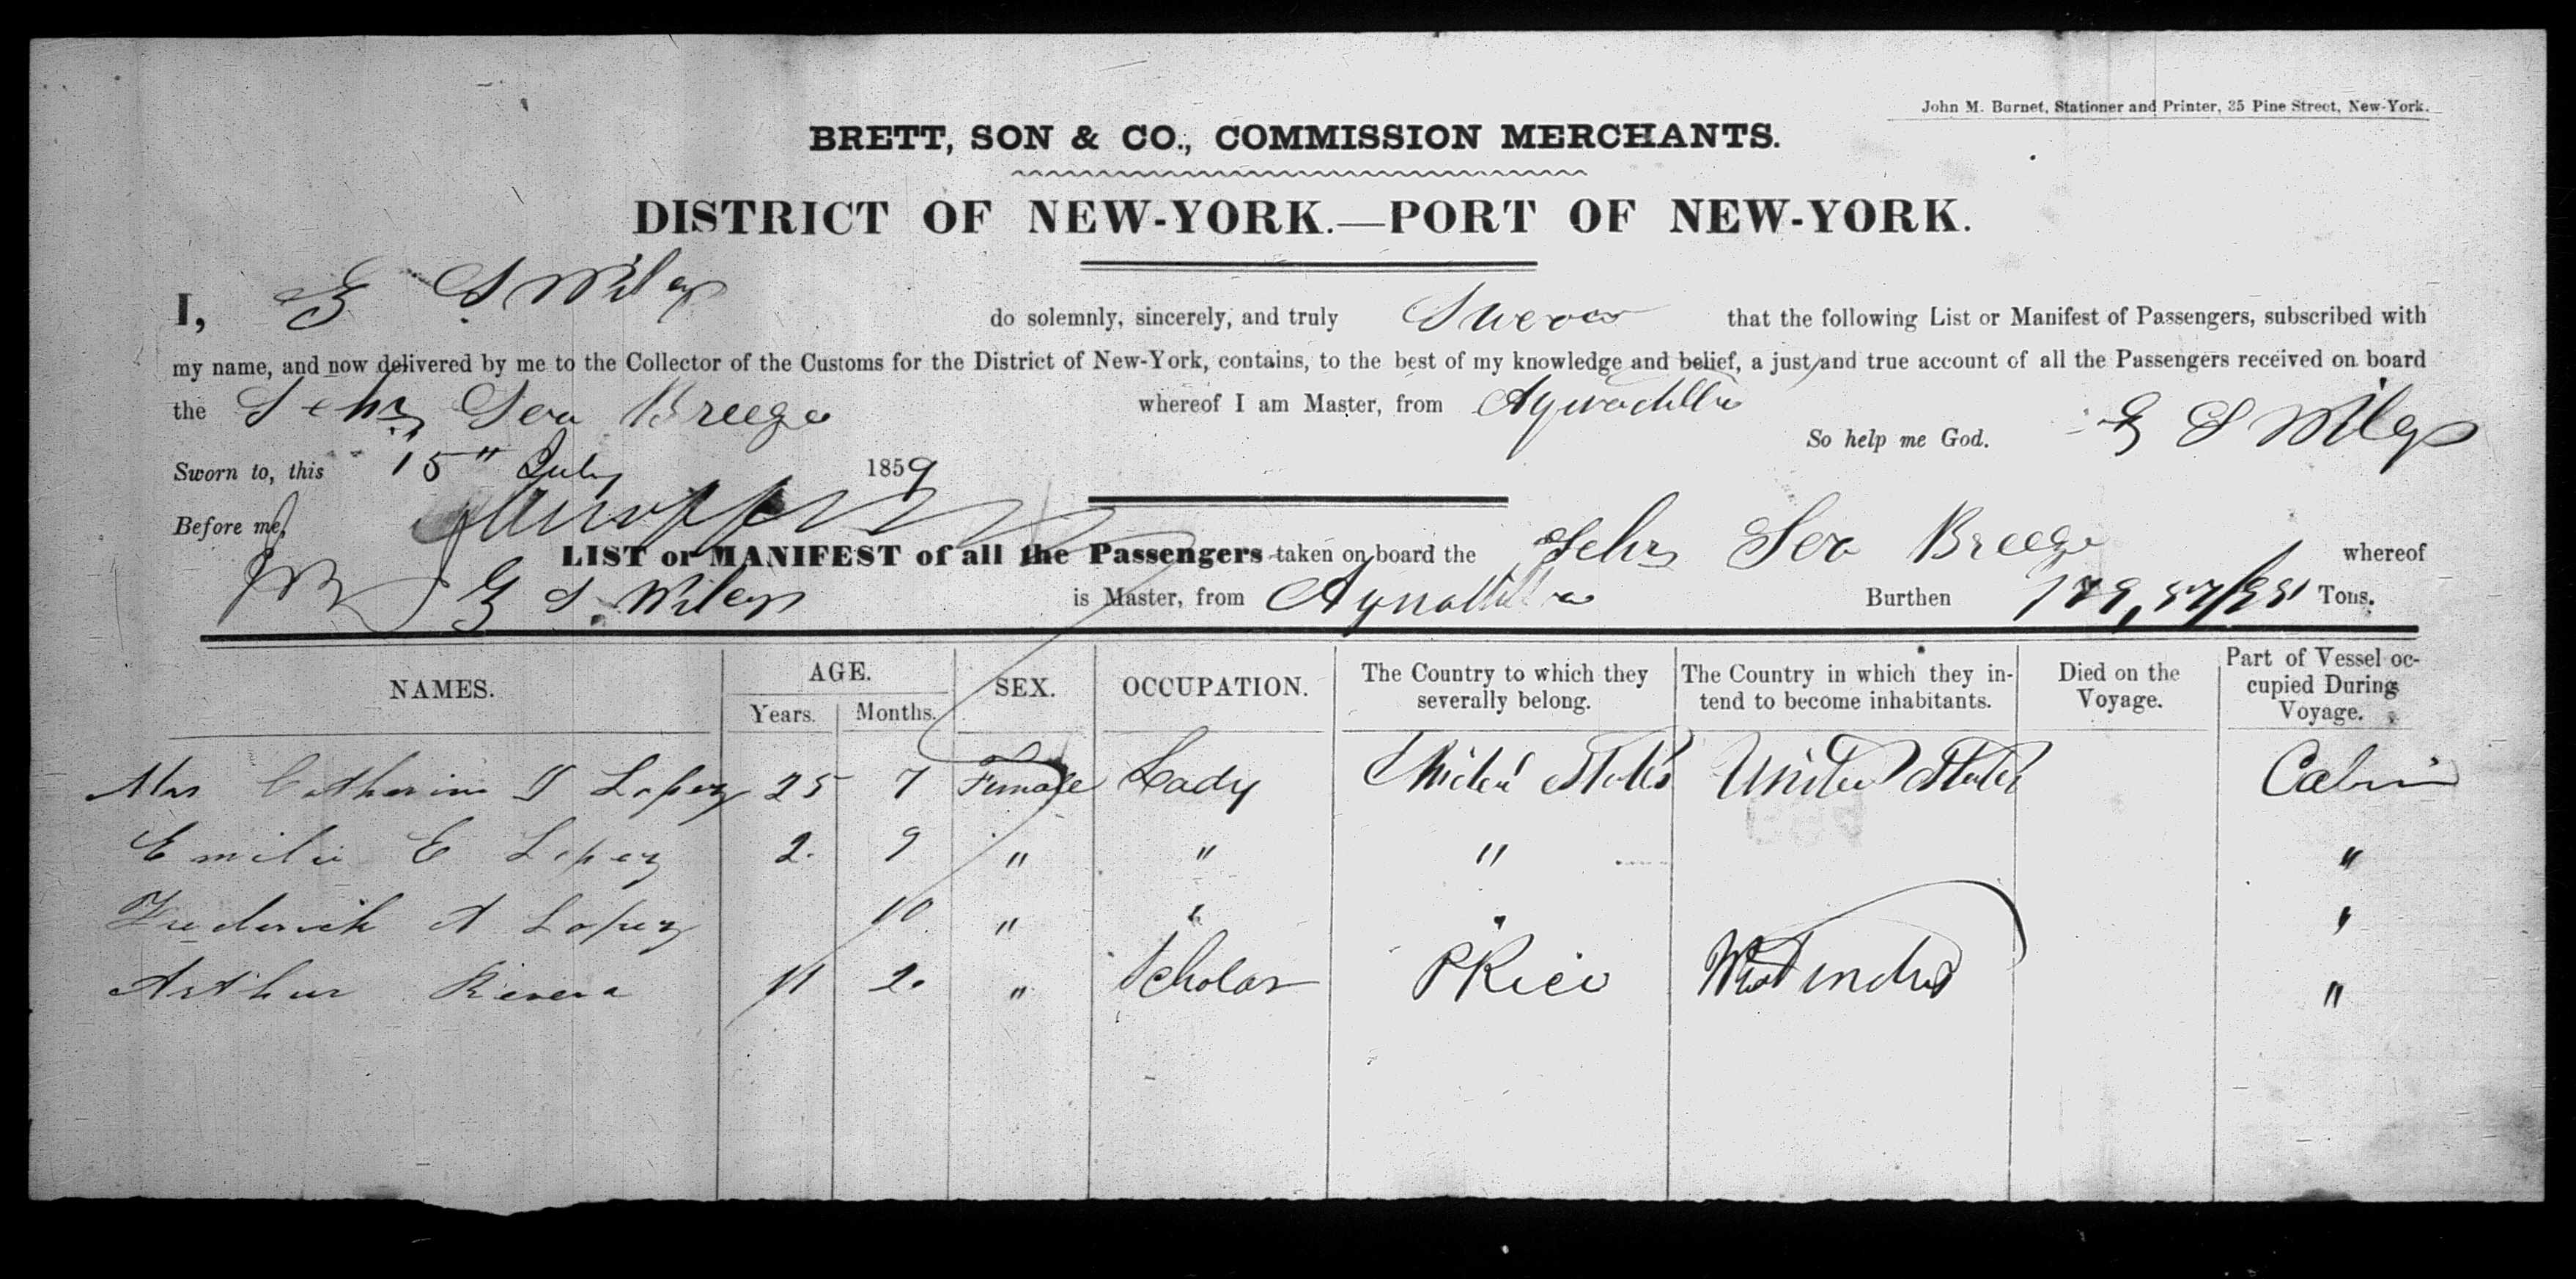 John M. Burnet, Stationer and Printer, 35 Pine Street, New-York.
BRETT, SON & CO., COMMISSION MERCHANTS.
DISTRICT OF NEW-YORK.—PORT OF NEW-YORK.
I, G S Wiley do solemnly, sincerely, and truly Swear that the following List or Manifest of Passengers, subscribed with
my name, and now delivered by me to the Collector of the Customs for the District of New-York, contains, to the best of my knowledge and belief, a just and true account of all the Passengers received on board
the Schr Sea Breeze whereof I am Master, from Aguadilla
So help me God. G S Wiley
Sworn to, this 15" July 1859
Before me,
LIST or MANIFEST of all the Passengers taken on board the Schr Sea Breeze whereof
G S. Wiley is Master, from Aguadilla Burthen Tons.
NAMES. AGE. SEX. OCCUPATION. The Country to which they severally belong. The Country in which they intend to become inhabitants. Died on the Voyage. Part of Vessel occupied During Voyage.
Years. Months.
Mrs Catharine Lopez 25 7 Female Lady United States United States Cabin
Emilie E Lopez 2. 9 " " " "
Frederick A Lopez 10 " " " "
Arthur Rivera 11 2. " Scholar P Rico West Indies "